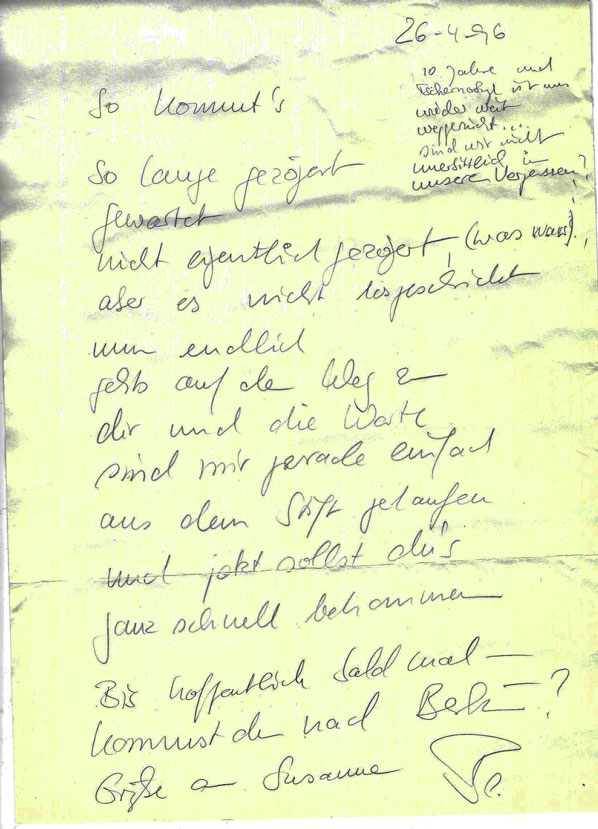 26-4-96
10 Jahre und
Tschernobyl ist uns
wieder weit
weggerückt...
sind wir nicht
unersättlich in
unserem Vergessen?
So kommt's
So lange gezögert
gewartet
nicht eigentlich gezögert, (was war?!)
aber es nicht losgeschickt
nun endlich
geht's auf den Weg zu
dir und die Worte
sind mir gerade einfach
aus dem Stift gelaufen
und jetzt sollst du's
ganz schnell bekommen
Bis hoffentlich bald mal —
kommst du nach Berlin?
Grüße an Susanne